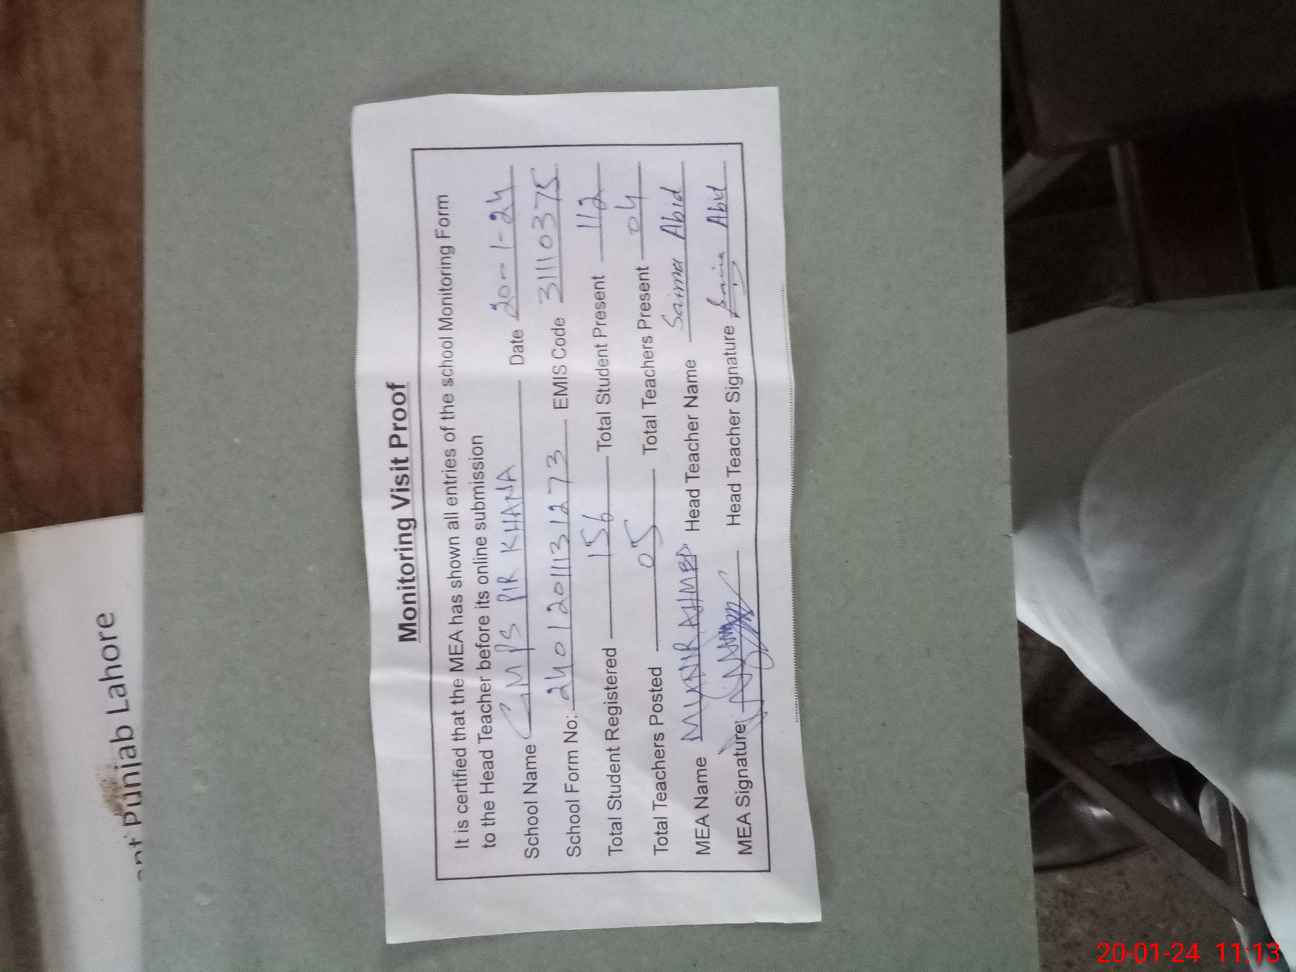 Monitoring Visit Proof
It is certified that the MEA has shown all entries of the school Monitoring Form
to the Head Teacher before its online submission
School Name GMPS PIR KHANA Date 20-1-24
School Form No: 2401201131273 EMIS Code 31110375
Total Student Registered 156 Total Student Present 112
Total Teachers Posted 05 Total Teachers Present 04
MEA Name MUNIR AHMED Head Teacher Name Saima Abid
MEA Signature: Head Teacher Signature Saima Abid
Punjab Lahore
20-01-24 11:13